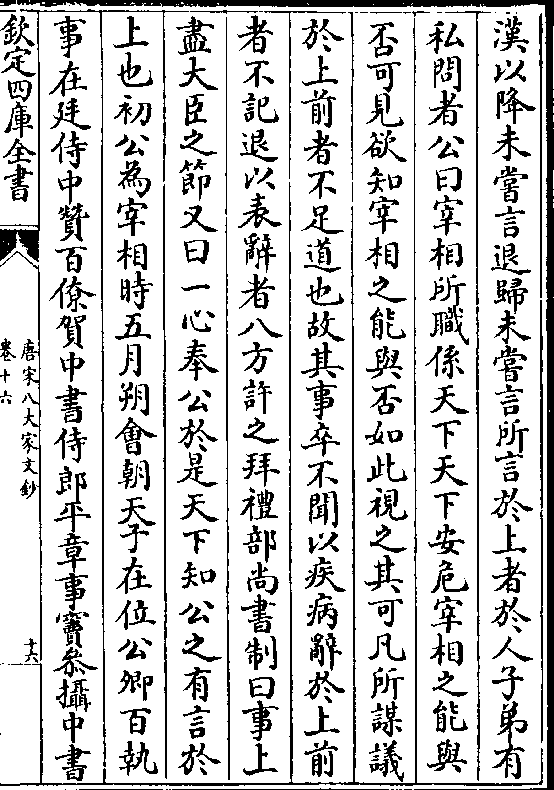 漢以降未嘗言退歸未嘗言所言於上者於人子弟有
私問者公曰宰相所職係天下天下安危宰相之能與
否可見欲知宰相之能與否如此視之其可凡所謀議
於上前者不足道也故其事卒不聞以疾病辭於上前
者不記退以表辭者八方許之拜禮部尚書制曰事上
盡大臣之節又曰一心奉公於是天下知公之有言於
上也初公為宰相時五月朔會朝天子在位公卿百執
事在廷侍中贊百僚賀中書侍郎平章事竇叅攝中書
欽定四庫全書
唐宋八大家文鈔
卷十六
十六